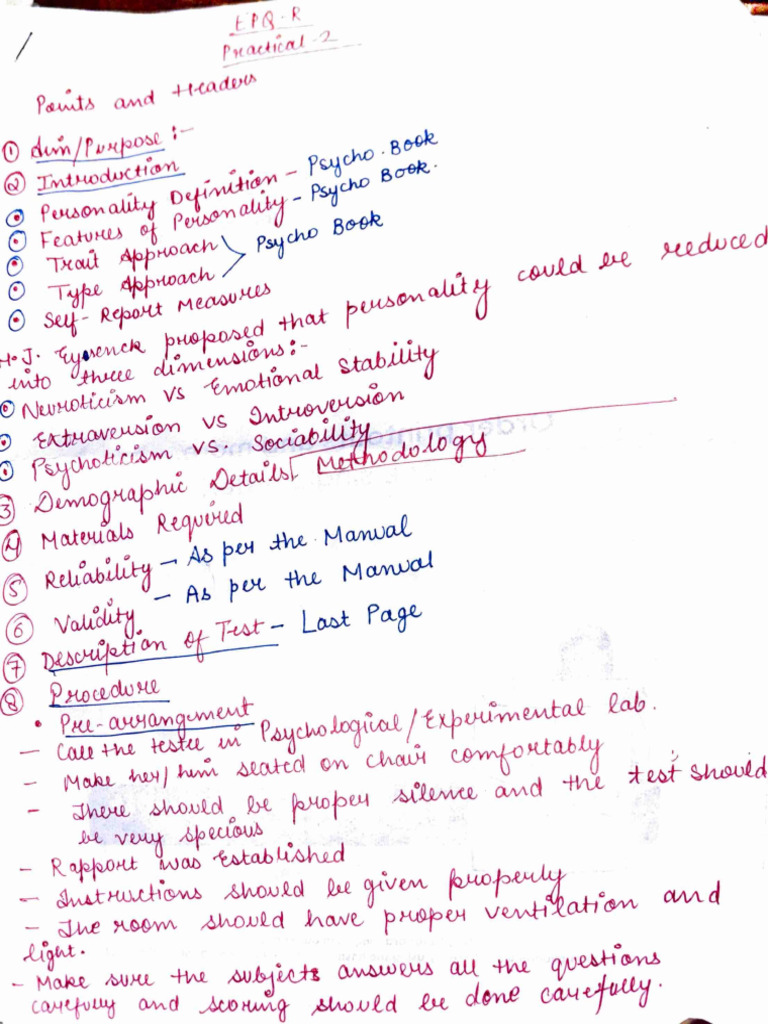 EPQ-R
Practical-2
Points and Headers
① Aim/Purpose:-
② Introduction
Personality Definition - Psycho.Book
Features of Personality - Psycho Book.
Trait Approach
Type Approach
Psycho Book
Self-Report Measures
H.J. Eysenck proposed that personality could be reduced
into three dimensions:-
Neuroticism vs Emotional Stability
Extraversion vs Introversion
Psychoticism vs. Sociability
③ Demographic Details Methodology
④ Materials Required
⑤ Reliability - As per the Manual
⑥ Validity - As per the Manual
⑦ Description of Test - Last Page
⑧ Procedure
• Pre-arrangement
- Call the testee in Psychological/Experimental lab.
- Make her/him seated on chair comfortably
- There should be proper silence and the test should
be very specious
- Rapport was Established
- Instructions should be given properly
- The room should have proper ventilation and
light.
- Make sure the subjects answers all the questions
carefully and scoring should be done carefully.